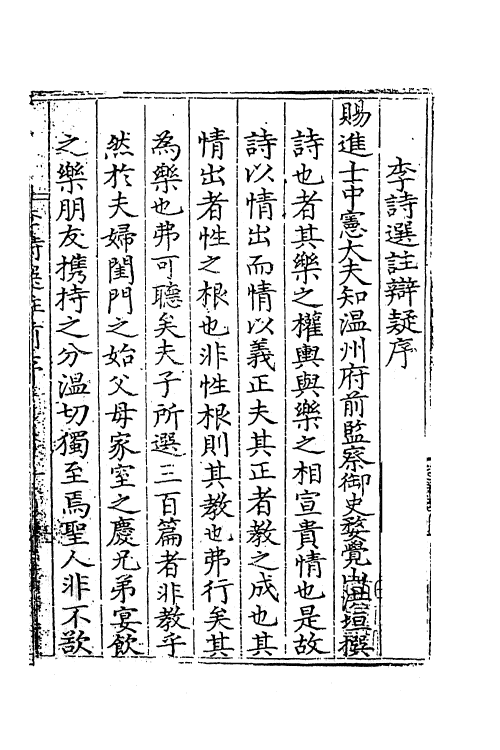 李詩選註辯疑序
賜進士中憲大夫知温州府前監察御史婺覺山洪垣撰
詩也者其樂之權輿與樂之相宣貴情也是故
詩以情出而情以義正夫其正者教之成也其
情出者性之根也非性根則其教也弗行矣其
為樂也弗可聽矣夫子所選三百篇者非教乎
然於夫婦閨門之始父母家室之慶兄弟宴飲
之樂朋友携持之分温切獨至焉聖人非不欲